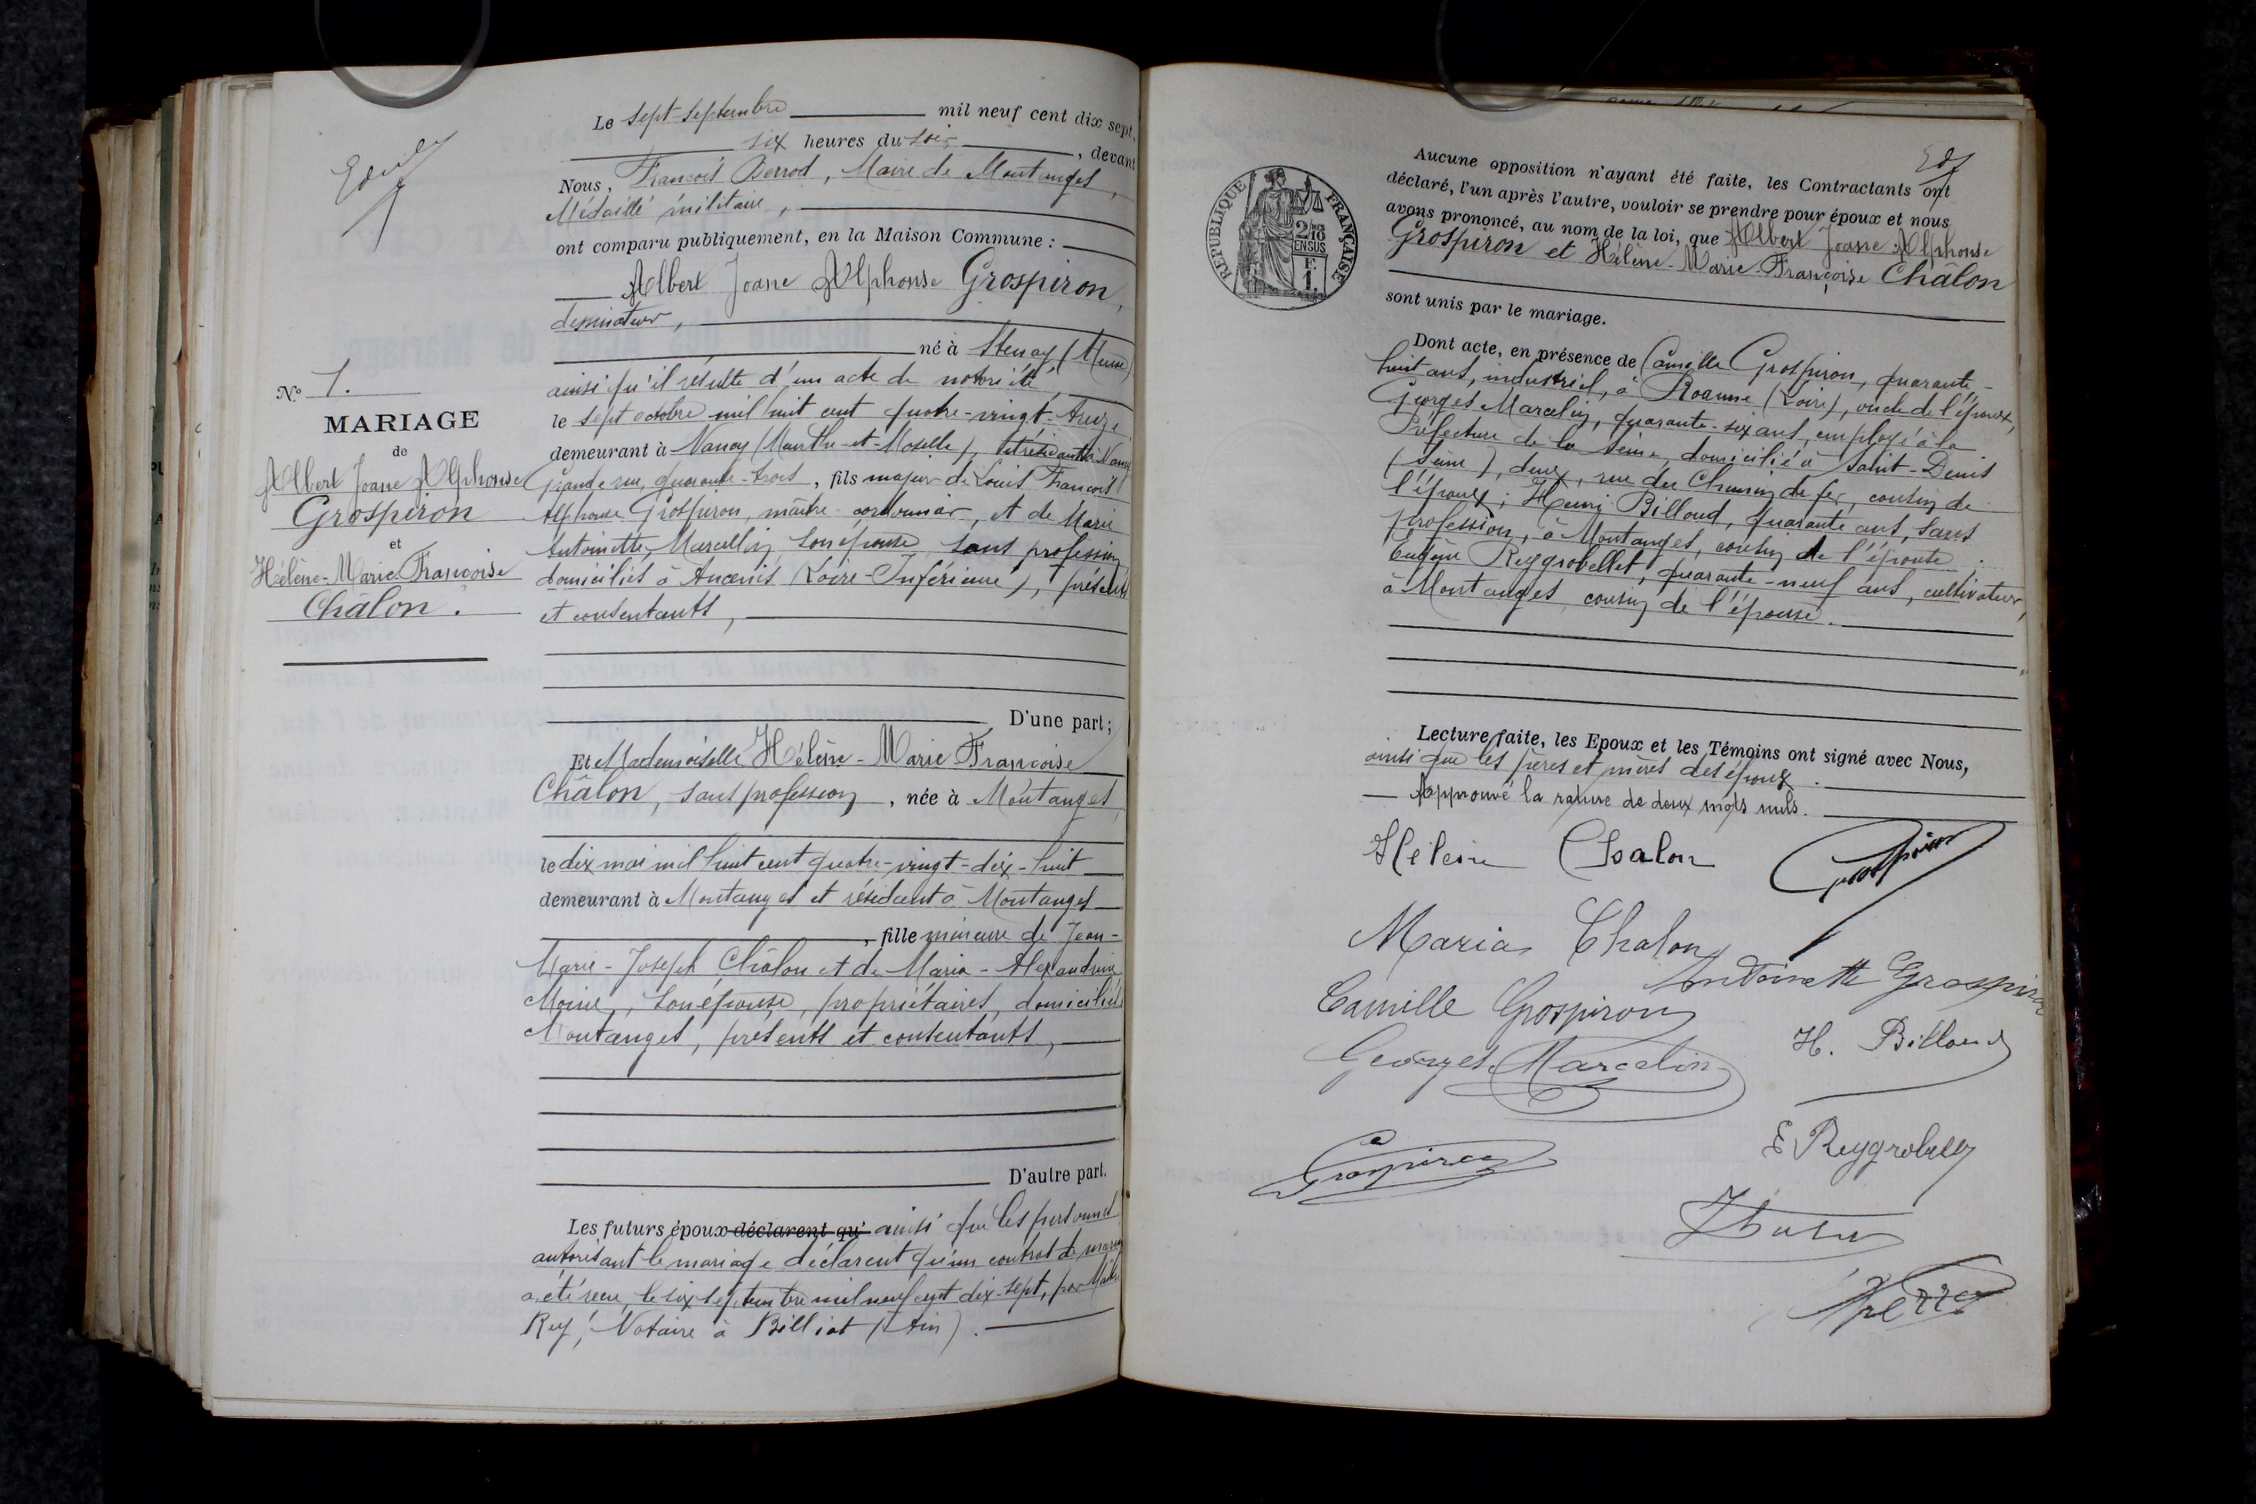 Le sept septembre mil neuf cent dix sept,
six heures du soir, devant
Nous, François Berrod, Maire de Montanges,
Médaillé militaire,
ont comparu publiquement, en la Maison Commune :
Albert Joane Alphonse Grospiron,
dessinateur,
né à Stenay (Meuse)
ainsi qu'il résulte d'un acte de notoriété
le sept octobre mil huit cent quatre-vingt-treize
demeurant à Nancy (Meurthe-et-Moselle), et résidant à Nancy
Grande rue, quarante-trois, fils majeur de Louis François
Alphonse Grospiron, maître cordonnier, et de Marie
Antoinette Marcellin son épouse sans profession
domiciliés à Ancenis (Loire-Inférieure), présents
et consentants,
D'une part ;
Et Mademoiselle Hélène-Marie Françoise
Châlon, sans profession, née à Montanges
le dix mai mil huit cent quatre-vingt-dix-huit
demeurant à Montanges et résidant à Montanges
, fille mineure de Jean-
Marie-Joseph Châlon et de Maria-Alexandrine
Moine, son épouse, propriétaires, domiciliés
Montanges, présents et consentants,
D'autre part.
Les futurs époux déclarent qu' ainsi que les personnes
autorisant le mariage déclarent qu'un contrat de mariage
a été reçu le six septembre mil neuf cent dix-sept, par Maître
Rey, Notaire à Billiat (Ain).
N° 1.
MARIAGE
de
Albert Joane Alphonse
Grospiron
et
Hélène-Marie Françoise
Châlon.
RÉPUBLIQUE FRANÇAISE
2/10
EN SUS
F.
1.
Aucune opposition n'ayant été faite, les Contractants ont
déclaré, l'un après l'autre, vouloir se prendre pour époux et nous
avons prononcé, au nom de la loi, que Albert Joane Alphonse
Grospiron et Hélène-Marie-Françoise Châlon
sont unis par le mariage.
Dont acte, en présence de Camille Grospiron, quarante-
huit ans, industriel, à Roanne (Loire), oncle de l'époux,
Georges Marcelin, quarante-six ans, employé à la
Préfecture de la Seine, domicilié à Saint-Denis
(Seine), deux, rue du Chemin de fer, cousin de
l'époux ; Henri Billoud, quarante ans, sans
profession, à Montanges, cousin de l'épouse ;
Eugène Reygrobellet, quarante-neuf ans, cultivateur,
à Montanges cousin de l'épouse.
Lecture faite, les Epoux et les Témoins ont signé avec Nous,
ainsi que les pères et mères des époux.
Approuvé la rature de deux mots nuls.
Hélène Chalon
Grospiron
Maria Chalon
Antoinette Grospiron
Camille Grospiron
H. Billoud
Georges Marcelin
Grospiron
E Reygrobellet